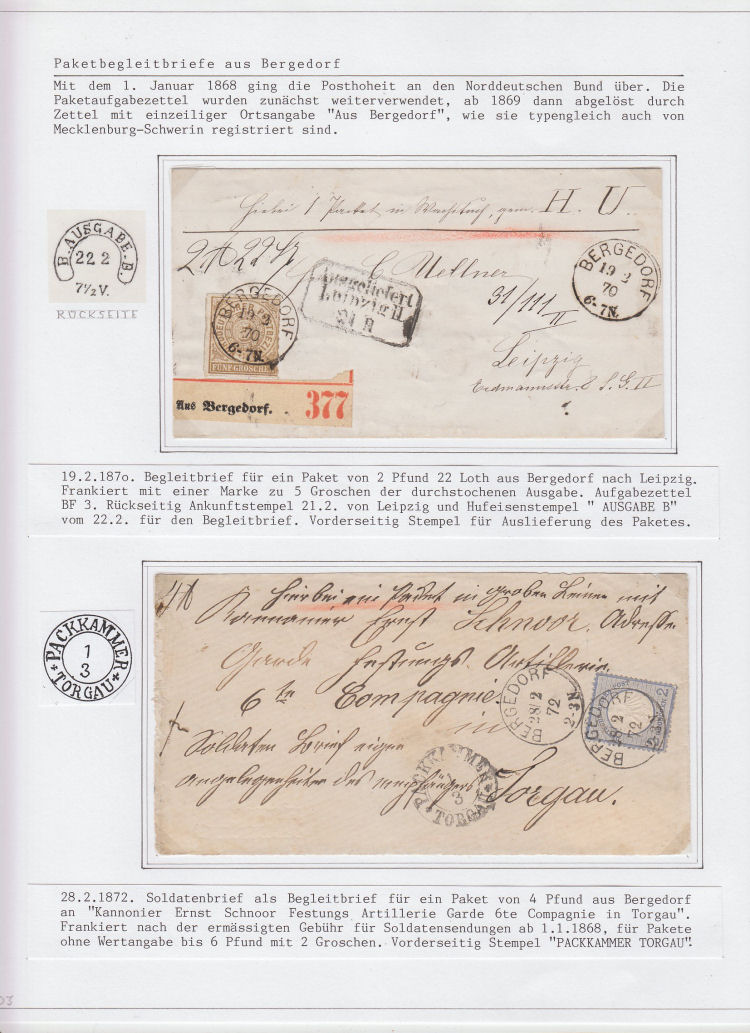 Paketbegleitbriefe aus Bergedorf
Mit dem 1. Januar 1868 ging die Posthoheit an den Norddeutschen Bund über. Die
Paketaufgabezettel wurden zunächst weiterverwendet, ab 1869 dann abgelöst durch
Zettel mit einzeiliger Ortsangabe "Aus Bergedorf", wie sie typengleich auch von
Mecklenburg-Schwerin registriert sind.
B. AUSGABE-B.
22 2
7½ V.
RÜCKSEITE
Hiebei 1 Packet in Wachstuch, gem. H. U.
BERGEDORF
19 2
70
6-7N.
Ausgeliefert
Leipzig II
21 N
31/111
II
Leipzig
BERGEDORF
19 2
70
6-7N.
FÜNF GROSCHEN
Aus Bergedorf. 377
19.2.187o. Begleitbrief für ein Paket von 2 Pfund 22 Loth aus Bergedorf nach Leipzig.
Frankiert mit einer Marke zu 5 Groschen der durchstochenen Ausgabe. Aufgabezettel
BF 3. Rückseitig Ankunftstempel 21.2. von Leipzig und Hufeisenstempel " AUSGABE B"
vom 22.2. für den Begleitbrief. Vorderseitig Stempel für Auslieferung des Paketes.
PACKKAMMER
1
3
TORGAU
Hierbei ein Packet in groben Leinen mit
Kannanier Ernst Schnoor, Adresse
Garde Festungs Artillerie
6te Compagnie
in
BERGEDORF
28 2
72
2-3N
BERGEDORF
28 2
72
2-3N
Soldaten Brief eigen
angelegenheiten des empfängers Torgau.
PACKKAMMER
3
TORGAU
28.2.1872. Soldatenbrief als Begleitbrief für ein Paket von 4 Pfund aus Bergedorf
an "Kannonier Ernst Schnoor Festungs Artillerie Garde 6te Compagnie in Torgau".
Frankiert nach der ermässigten Gebühr für Soldatensendungen ab 1.1.1868, für Pakete
ohne Wertangabe bis 6 Pfund mit 2 Groschen. Vorderseitig Stempel "PACKKAMMER TORGAU".